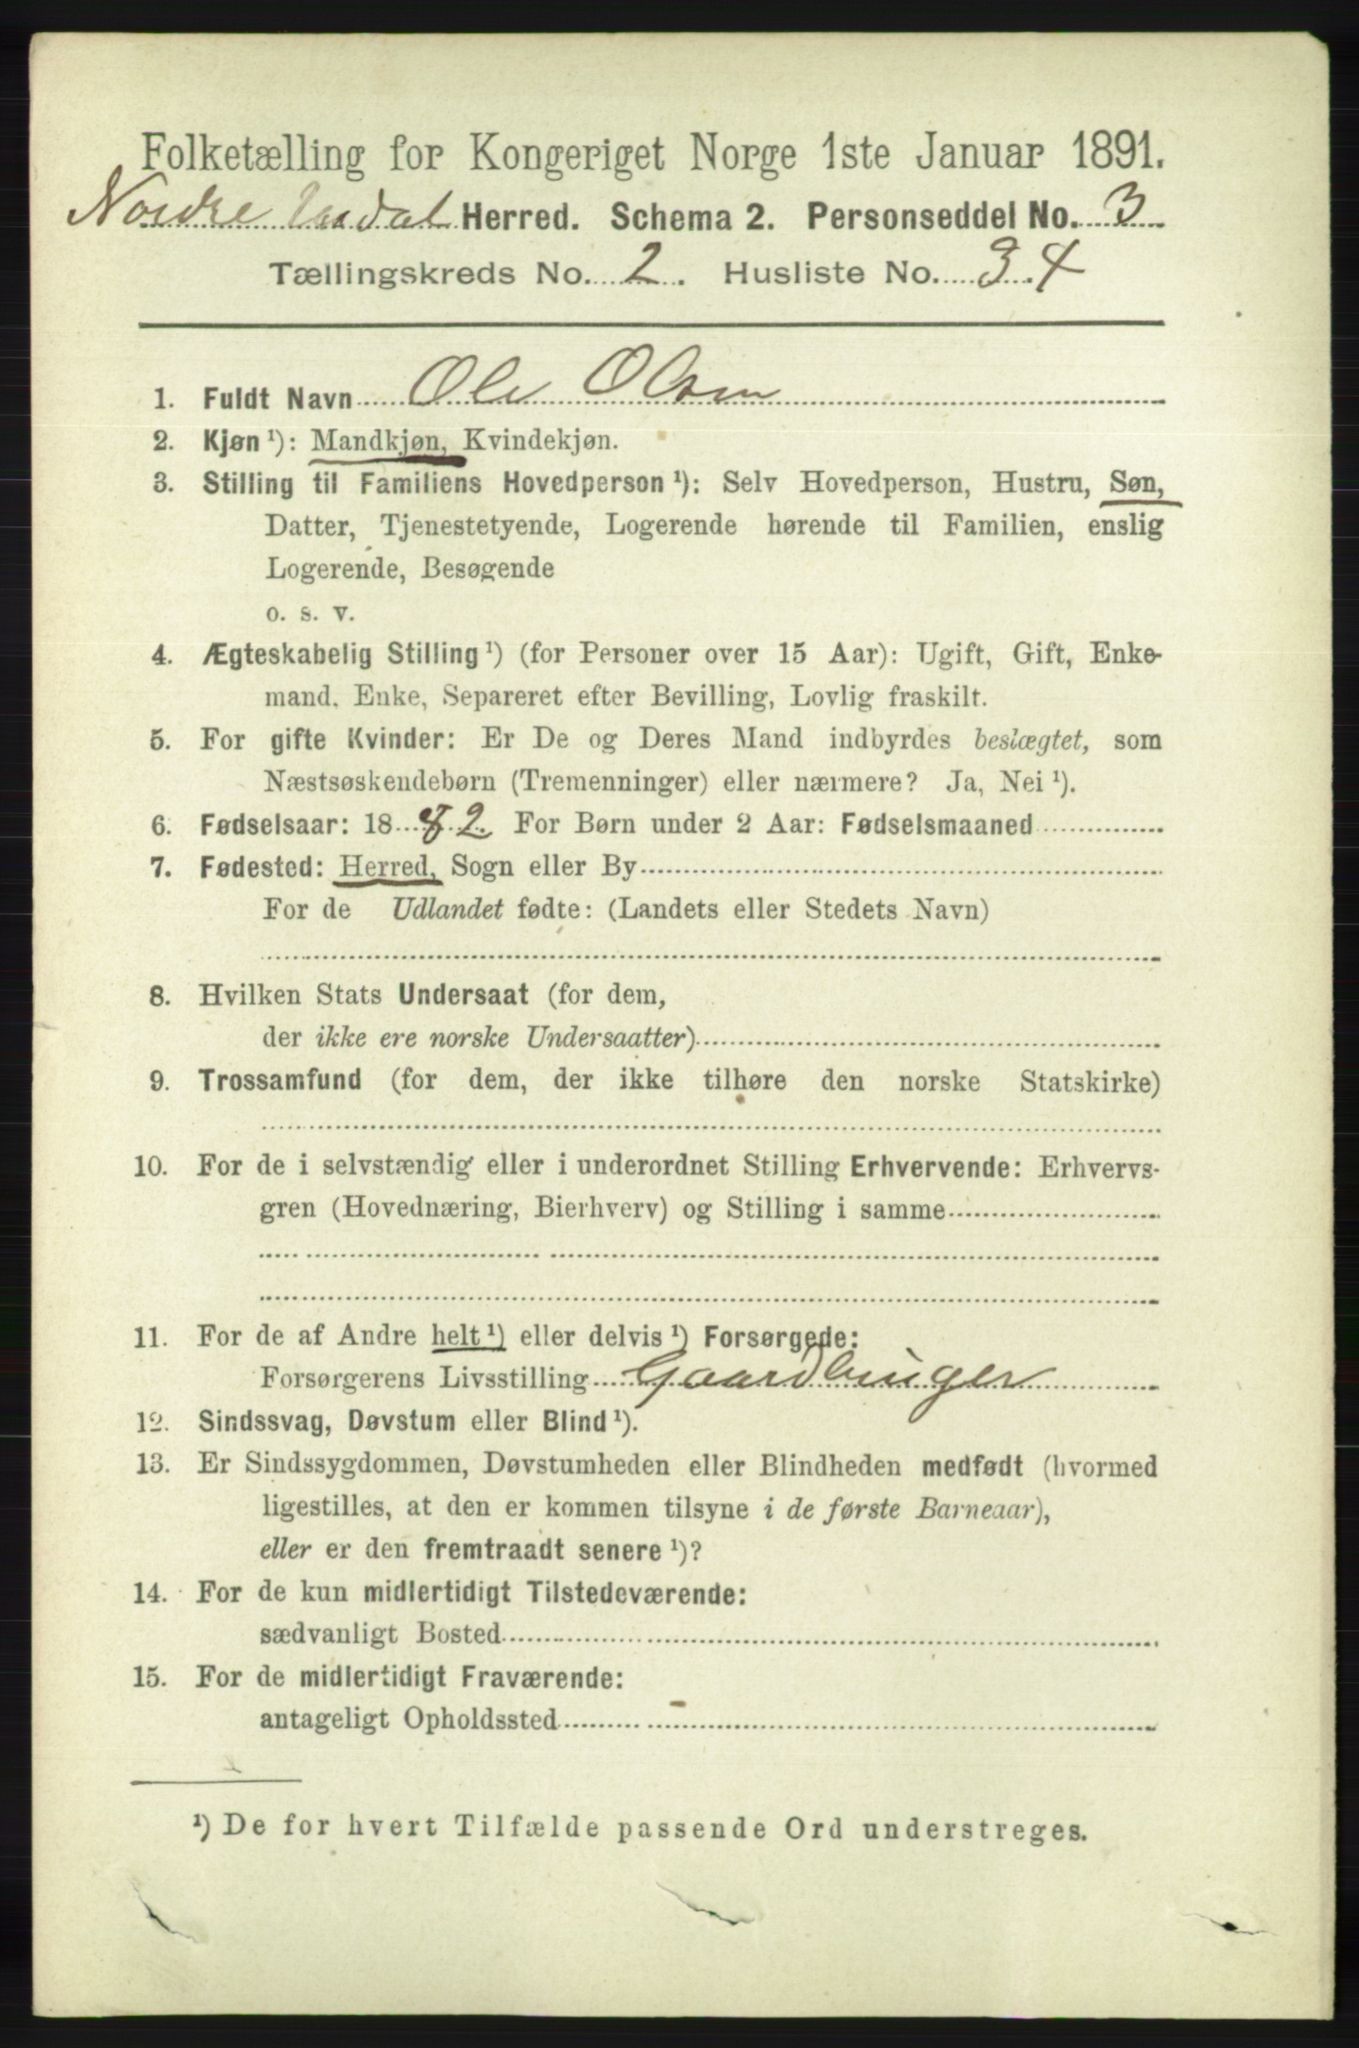 Folketælling for Kongeriget Norge 1ste Januar 1891.
Nordre Undal Herred. Schema 2. Personseddel No. 3
Tællingskreds No. 2. Husliste No. 34
1. Fuldt Navn Ole Olsen
2. Kjøn ¹): Mandkjøn, Kvindekjøn.
3. Stilling til Familiens Hovedperson ¹): Selv Hovedperson, Hustru, Søn,
Datter, Tjenestetyende, Logerende hørende til Familien, enslig
Logerende, Besøgende
o. s. v.
4. Ægteskabelig Stilling ¹) (for Personer over 15 Aar): Ugift, Gift, Enke-
mand, Enke, Separeret efter Bevilling, Lovlig fraskilt.
5. For gifte Kvinder: Er De og Deres Mand indbyrdes beslægtet, som
Næstsøskendebørn (Tremenninger) eller nærmere? Ja, Nei ¹).
6. Fødselsaar: 1882. For Børn under 2 Aar: Fødselsmaaned
7. Fødested: Herred, Sogn eller By
For de Udlandet fødte: (Landets eller Stedets Navn)
8. Hvilken Stats Undersaat (for dem,
der ikke ere norske Undersaatter)
9. Trossamfund (for dem, der ikke tilhøre den norske Statskirke)
10. For de i selvstændig eller i underordnet Stilling Erhvervende: Erhvervs-
gren (Hovednæring, Bierhverv) og Stilling i samme
11. For de af Andre helt ¹) eller delvis ¹) Forsørgede:
Forsørgerens Livsstilling Gaardbruger
12. Sindssvag, Døvstum eller Blind ¹).
13. Er Sindssygdommen, Døvstumheden eller Blindheden medfødt (hvormed
ligestilles, at den er kommen tilsyne i de første Barneaar),
eller er den fremtraadt senere ¹)?
14. For de kun midlertidigt Tilstedeværende:
sædvanligt Bosted
15. For de midlertidigt Fraværende:
antageligt Opholdssted
¹) De for hvert Tilfælde passende Ord understreges.